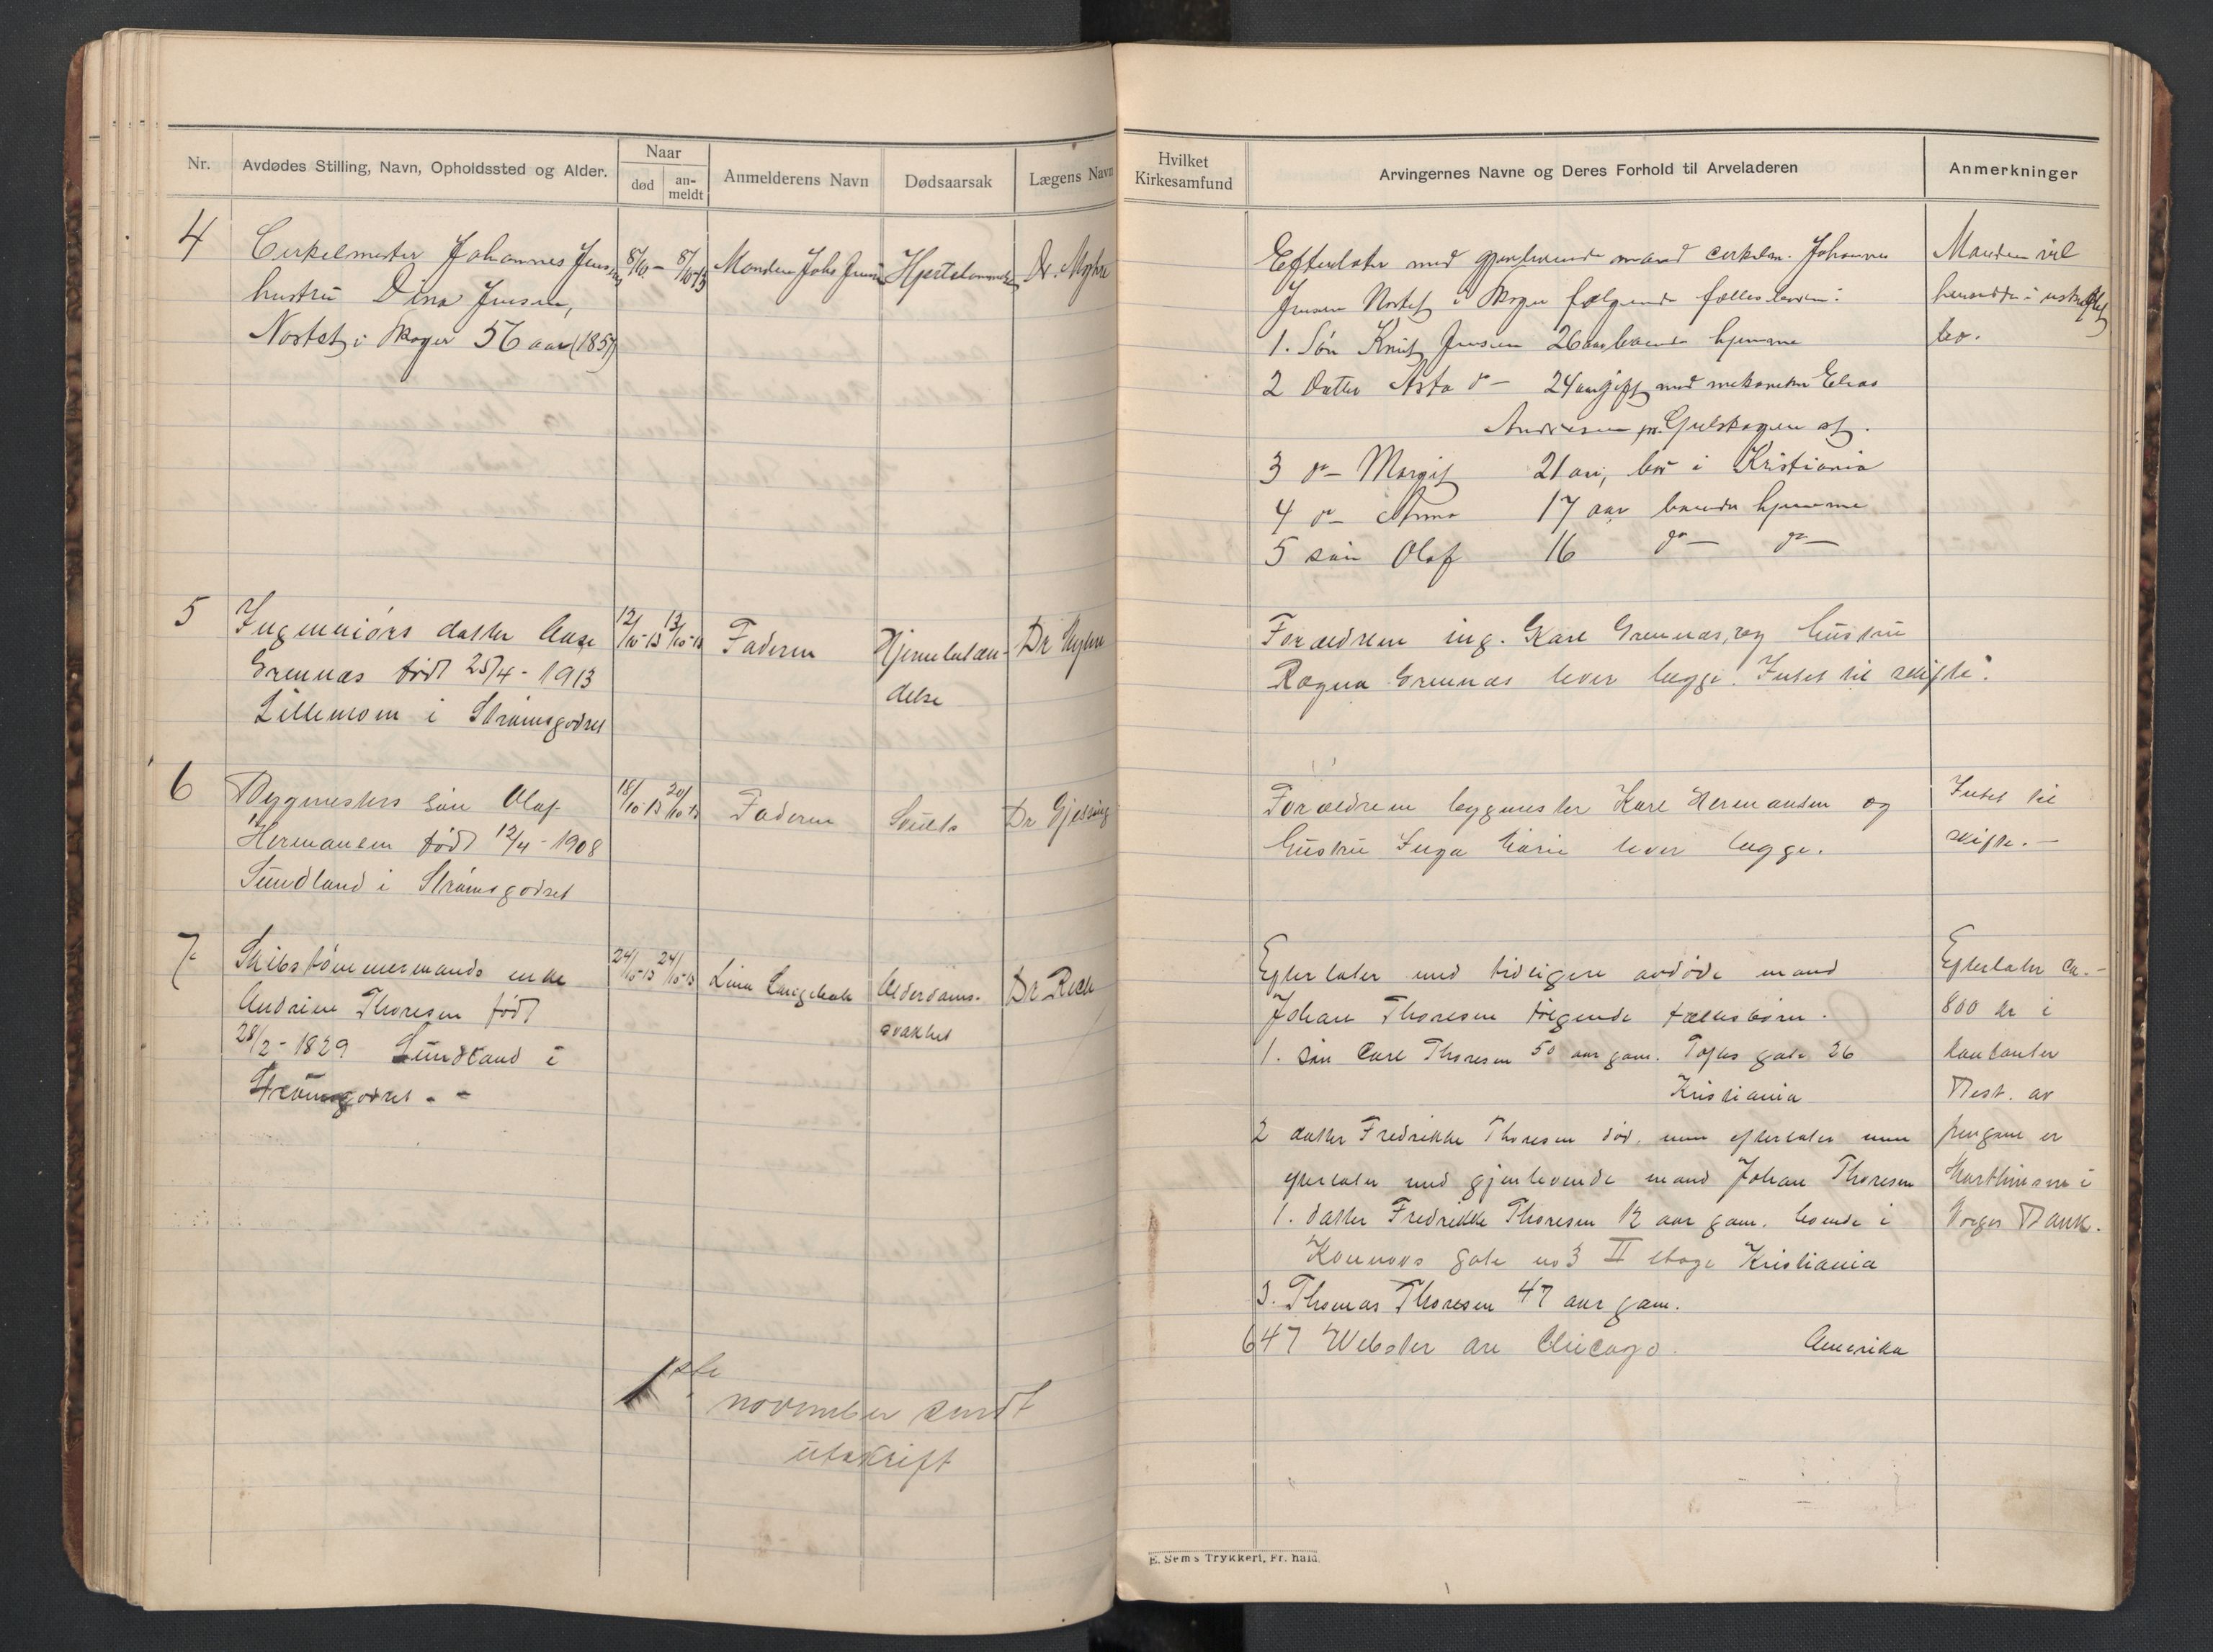 Nr.
Avdødes Stilling, Navn, Opholdssted og Alder.
Naar
død
an-
meldt
Anmelderens Navn
Dødsaarsak
Lægens Navn
4
Cirkelmester Johannes Jensens
hustru Dina Jensen,
Nortet i Skoger 56 aar (1857)
8/10 – 8/10-13
Manden Johs Jensen
Hjertelammelse
Dr.
5
Ingeniörs datter Aase
Grennæs född 25/4 - 1913
Lillemoen i Strömsgodset
12/10-13 13/10-13
Faderen
Hjernebetæn-
delse
Dr
6
Bygmesters sön Olaf
Hermansen född 12/4 - 1908
Sundland i Strömsgodset
18/10-13 20/10-13
Faderen
Dr Gjessing
7
Skibstömmermands enke
Andrine Thoresen född
28/2 - 1829 Sundland i
Strömsgodset - -
24/10-13 24/10-13
Lina
Alderdoms-
svakhet
Dr Rick
1ste
november sendt
utskrift
Hvilket
Kirkesamfund
Arvingernes Navne og Deres Forhold til Arveladeren
Anmerkninger
Efterlater med gjenlevende mand cirkelm. Johannes
Jensen Nortet i Skoger følgende fællesbørn:
1. Sön Knut Jensen 26 aar boende hjemme
2 Datter Asta do – 24 aar gift med mekaniker Elias
Andresen pr. Gulskogen st.
3 do – Margit 21 aar, bor i Kristiania
4 do – Anna 17 aar boende hjemme
5 sön Olaf 16 do – do –
Manden vil
hensidde i uskiftet
bo.
Forældrene ing. Kare Grennæs, og hustru
Ragna Grennæs lever begge. Intet til skifte.
Forældrene bygmester Kare Hermansen og
hustru Inga Marie lever begge.
Intet til
skifte. –
Efterlater med tidligere avdöde mand
Johan Thoresen fölgende fællesbörn.
1. Sön Carl Thoresen 50 aar gam. Toftes gate 26
Kristiania
2 datter Fredrikke Thoresen död, men efterlater
efterlater med gjenlevende mand Johan Thoresen
1. datter Fredrikke Thoresen 12 aar gam. boende i
gate no 3 II etage Kristiania
3. Thomas Thoresen 47 aar gam.
647 Webster ave Chicago. Amerika
Efterlater ca. -
800 kr i
kontanter
Best. av
pengene er
Marthinsen i
Norges Bank.
E. Sem's Trykkeri, Fr. hald.